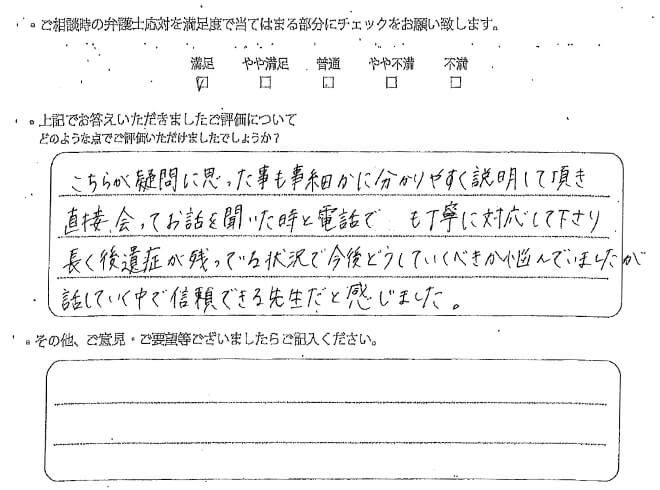 。ご相談時の弁護士応対を満足度で当てはまる部分にチェックをお願い致します。
満足 やや満足 普通 やや不満 不満
☑ □ □ □ □
。上記でお答えいただきましたご評価について
どのような点でご評価いただけましたでしょうか?
こちらが疑問に思った事も事細かに分かりやすく説明して頂き
直接、会ってお話を聞いた時と電話で も丁寧に対応して下さり
長く後遺症が残っている状況で今後どうしていくべきか悩んでいましたが
話していく中で信頼できる先生だと感じました。
。その他、ご意見・ご要望等ございましたらご記入ください。